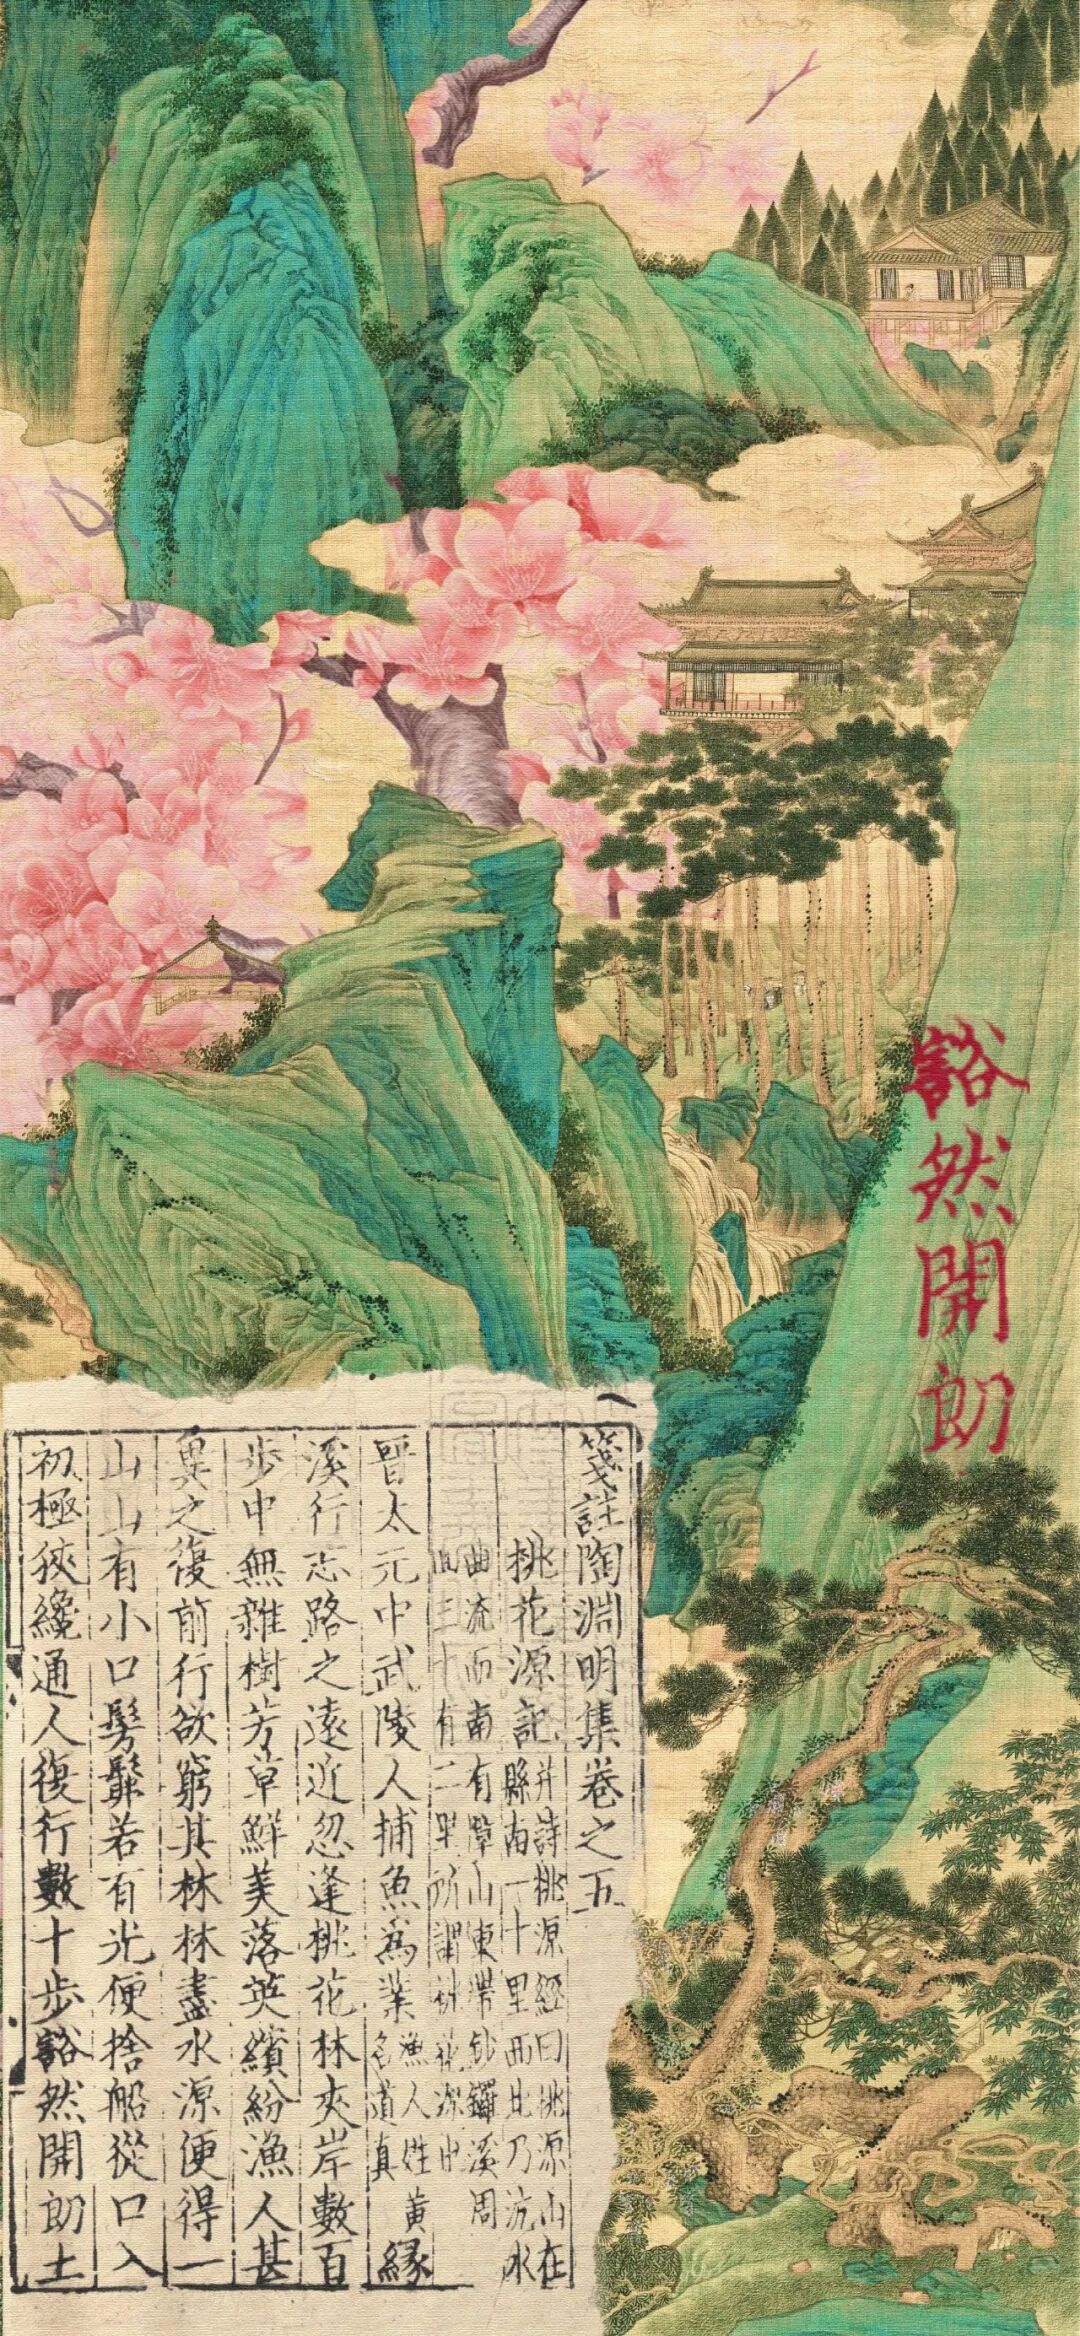 豁然開朗
箋註陶淵明集卷之五
桃花源記并詩桃源經曰桃源山在
縣南一十里西北乃沅水
曲流而南有障山東帶鈔鑼溪周
回三十有二里所謂桃花源
晉太元中武陵人捕魚爲業漁人姓黃名道真緣
溪行忘路之遠近忽逢桃花林夾岸數百
步中無雜樹芳草鮮美落英繽紛漁人甚
異之復前行欲窮其林林盡水源便得一
山山有小口髣髴若有光便捨船從口入
初極狹纔通人復行數十步豁然開朗土